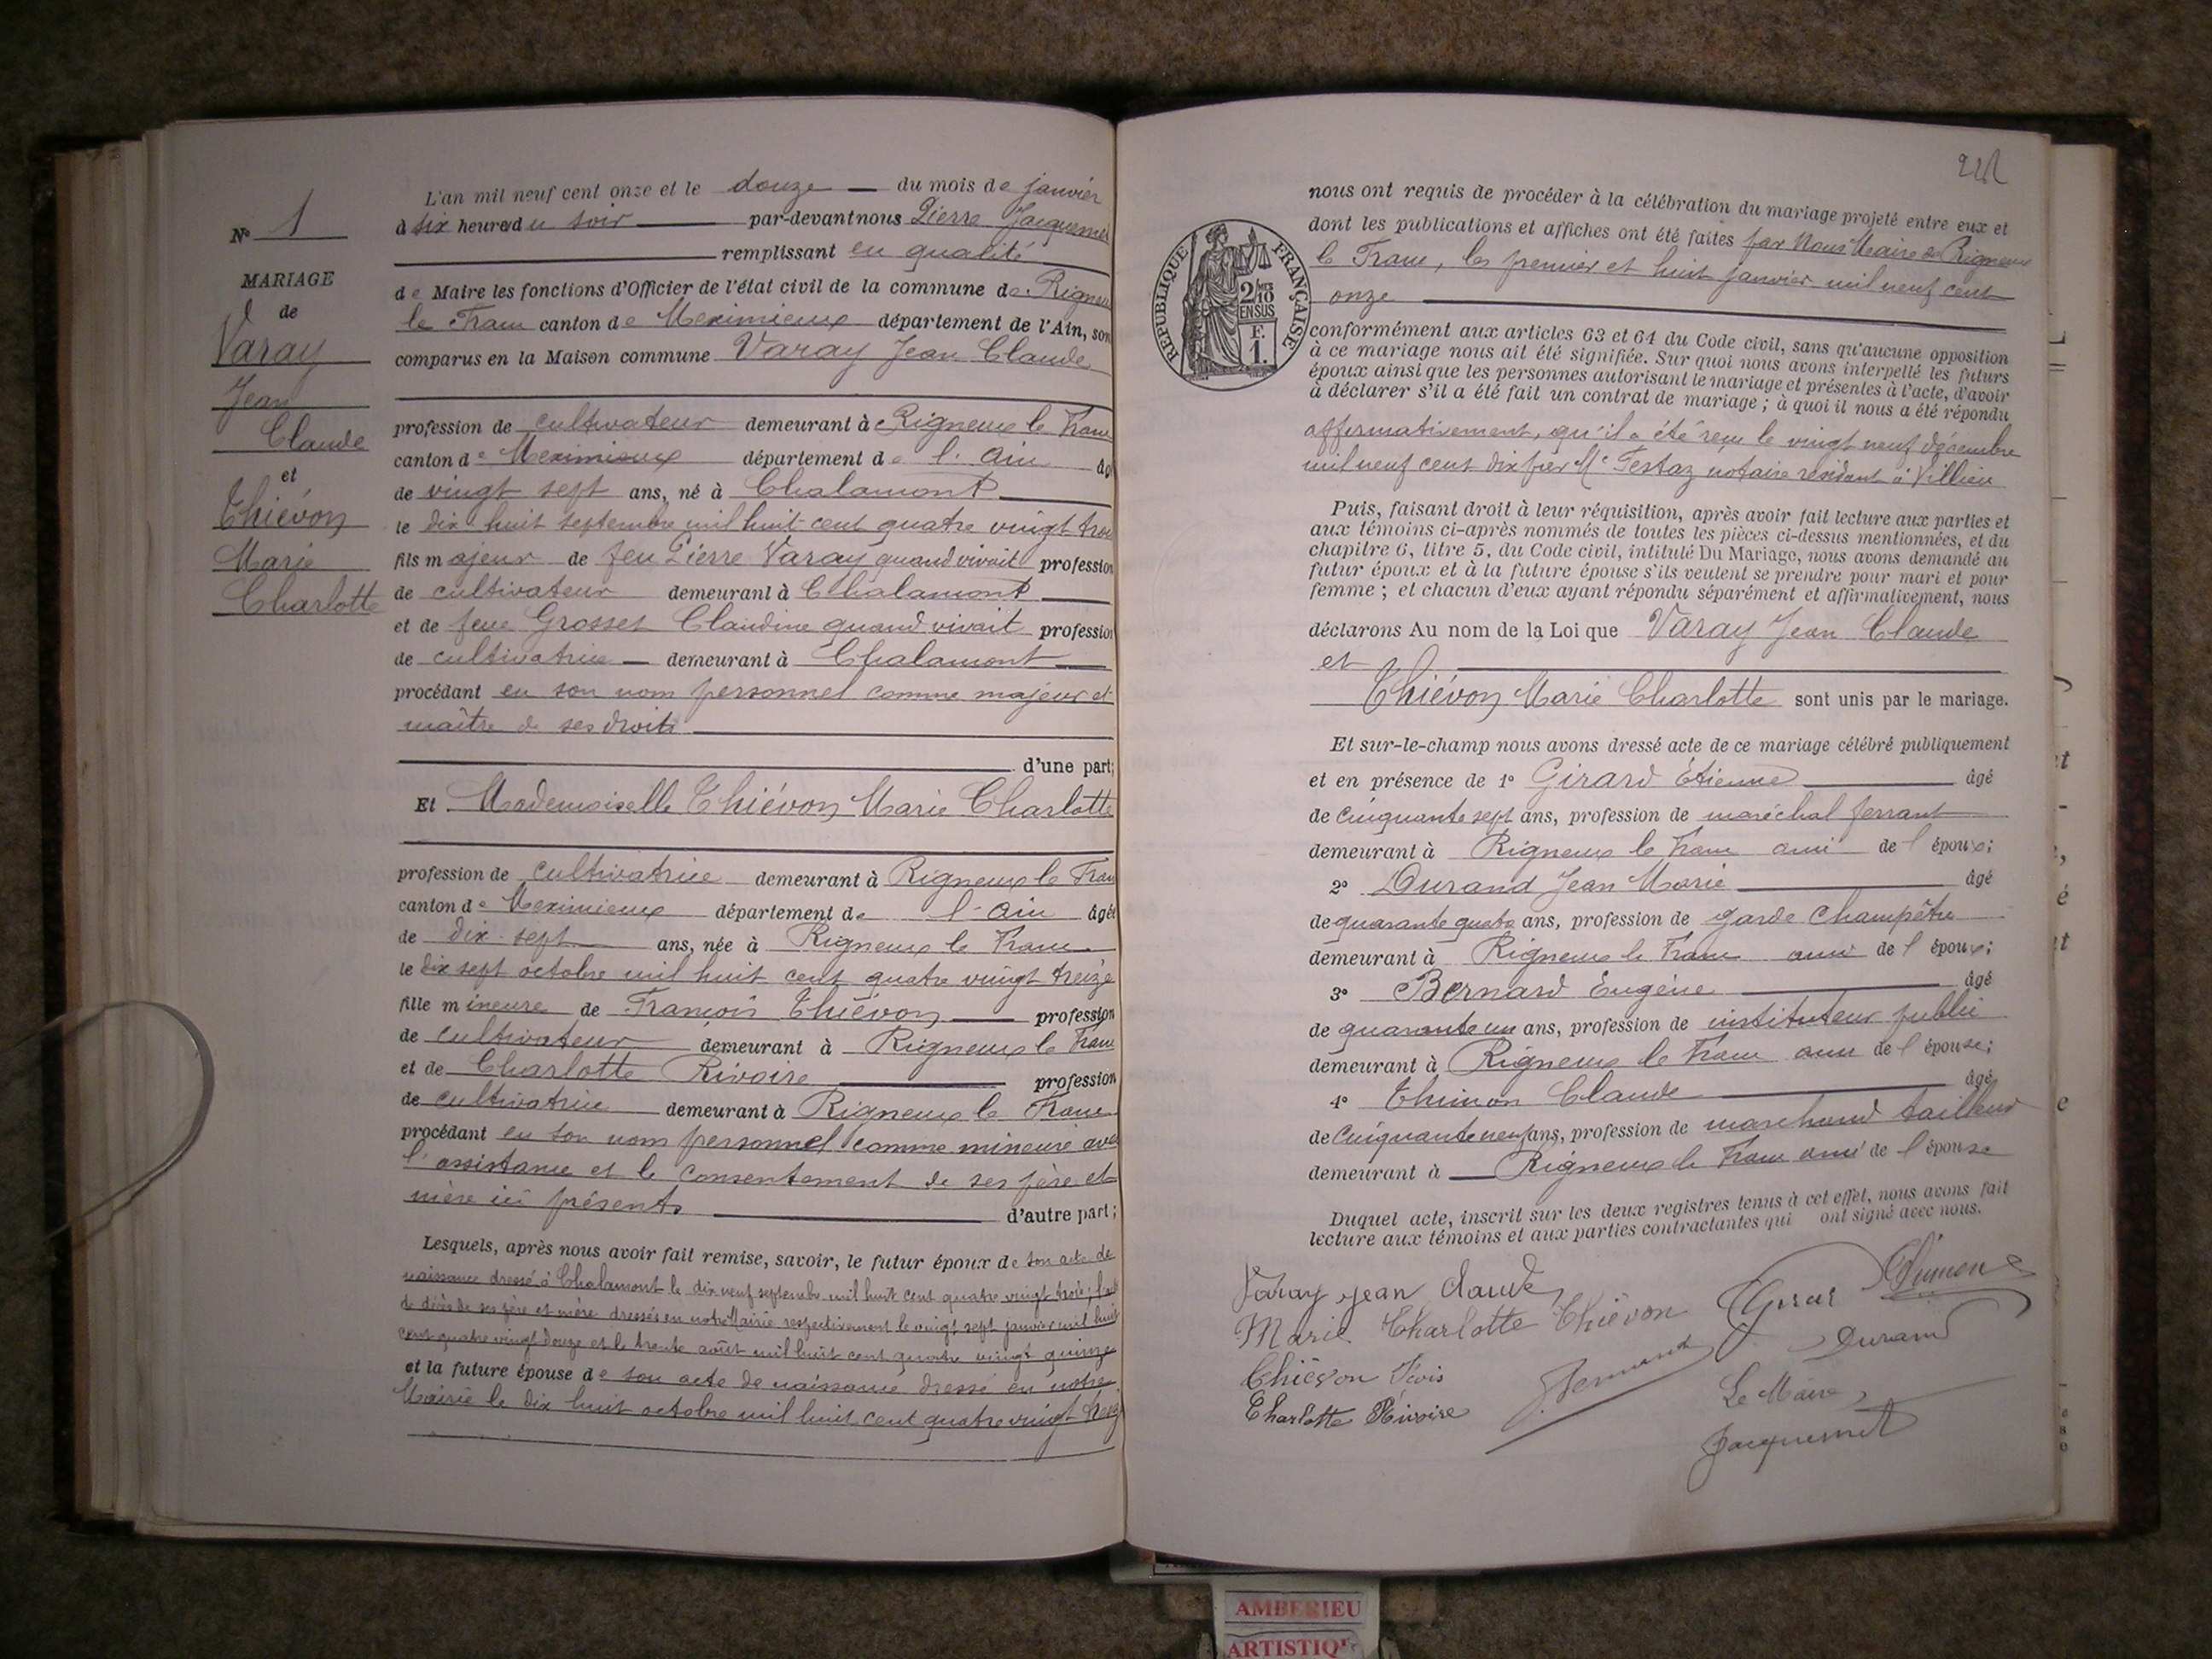 N° 1
MARIAGE
de
Varay
Jean
Claude
et
Thiévon
Marie
Charlotte
L'an mil neuf cent onze et le douze du mois de janvier
à six heures du soir par-devant nous Pierre Jacquemet
remplissant en qualité
de Maire les fonctions d'Officier de l'état civil de la commune de Rigneux
le Franc canton de Meximieux département de l'Ain, son
comparus en la Maison commune Varay Jean Claude
profession de cultivateur demeurant à Rigneux le Franc
canton de Meximieux département de l'Ain âg
de vingt sept ans, né à Chalamont
le dix huit septembre mil huit cent quatre vingt trois
fils majeur de feu Pierre Varay quand vivait profession
de cultivateur demeurant à Chalamont
et de feue Grosset Claudine quand vivait profession
de cultivatrice demeurant à Chalamont
procédant en son nom personnel comme majeur et
maître de ses droits
d'une part;
Et Mademoiselle Thiévon Marie Charlotte
profession de cultivatrice demeurant à Rigneux le Franc
canton de Meximieux département de l'Ain âgée
de dix sept ans, née à Rigneux le Franc
le dix sept octobre mil huit cent quatre vingt treize
fille mineure de François Thiévon profession
de cultivateur demeurant à Rigneux le Franc
et de Charlotte Rivoire profession
de cultivatrice demeurant à Rigneux le Franc
procédant en son nom personnel comme mineure avec
l'assistance et le consentement de ses père et
mère ici présents d'autre part;
Lesquels, après nous avoir fait remise, savoir, le futur époux de son acte de
naissance dressé à Chalamont le dix neuf septembre mil huit cent quatre vingt trois;
de décès de ses père et mère dressés en notre Mairie respectivement le vingt sept janvier mil huit
cent quatre vingt douze et le trente août mil huit cent quatre vingt quinze
et la future épouse de son acte de naissance dressé en notre
Mairie le dix huit octobre mil huit cent quatre vingt treize
nous ont requis de procéder à la célébration du mariage projeté entre eux et
dont les publications et affiches ont été faites par Nous Maire de Rigneux
le Franc, les premier et huit janvier mil neuf cent
onze
RÉPUBLIQUE FRANÇAISE
2/10
EN SUS
F.
1.
conformément aux articles 63 et 64 du Code civil, sans qu'aucune opposition
à ce mariage nous ait été signifiée. Sur quoi nous avons interpellé les futurs
époux ainsi que les personnes autorisant le mariage et présentes à l'acte, d'avoir
à déclarer s'il a été fait un contrat de mariage; à quoi il nous a été répondu
affirmativement, qu'il a été reçu le vingt neuf décembre
mil neuf cent dix par Me Testaz notaire résidant à Villieu
Puis, faisant droit à leur réquisition, après avoir fait lecture aux parties et
aux témoins ci-après nommés de toutes les pièces ci-dessus mentionnées, et du
chapitre 6, titre 5, du Code civil, intitulé Du Mariage, nous avons demandé au
futur époux et à la future épouse s'ils veulent se prendre pour mari et pour
femme; et chacun d'eux ayant répondu séparément et affirmativement, nous
déclarons Au nom de la Loi que Varay Jean Claude
et
Thiévon Marie Charlotte sont unis par le mariage.
Et sur-le-champ nous avons dressé acte de ce mariage célébré publiquement
et en présence de 1° Girard Étienne âgé
de cinquante sept ans, profession de maréchal ferrant
demeurant à Rigneux le Franc ami de l'époux;
2° Durand Jean Marie âgé
de quarante quatre ans, profession de garde champêtre
demeurant à Rigneux le Franc ami de l'époux;
3° Bernard Eugène âgé
de quarante un ans, profession de instituteur public
demeurant à Rigneux le Franc ami de l'épouse;
4° Thimon Claude âgé
de cinquante neuf ans, profession de marchand tailleur
demeurant à Rigneux le Franc ami de l'épouse
Duquel acte, inscrit sur les deux registres tenus à cet effet, nous avons fait
lecture aux témoins et aux parties contractantes qui ont signé avec nous.
Varay Jean Claude
Marie Charlotte Thiévon
Girard
Thimon
Durand
Thiévon Fcois
Charlotte Rivoire
Bernard
Le Maire,
Jacquemet
AMBERIEU
ARTISTIQ